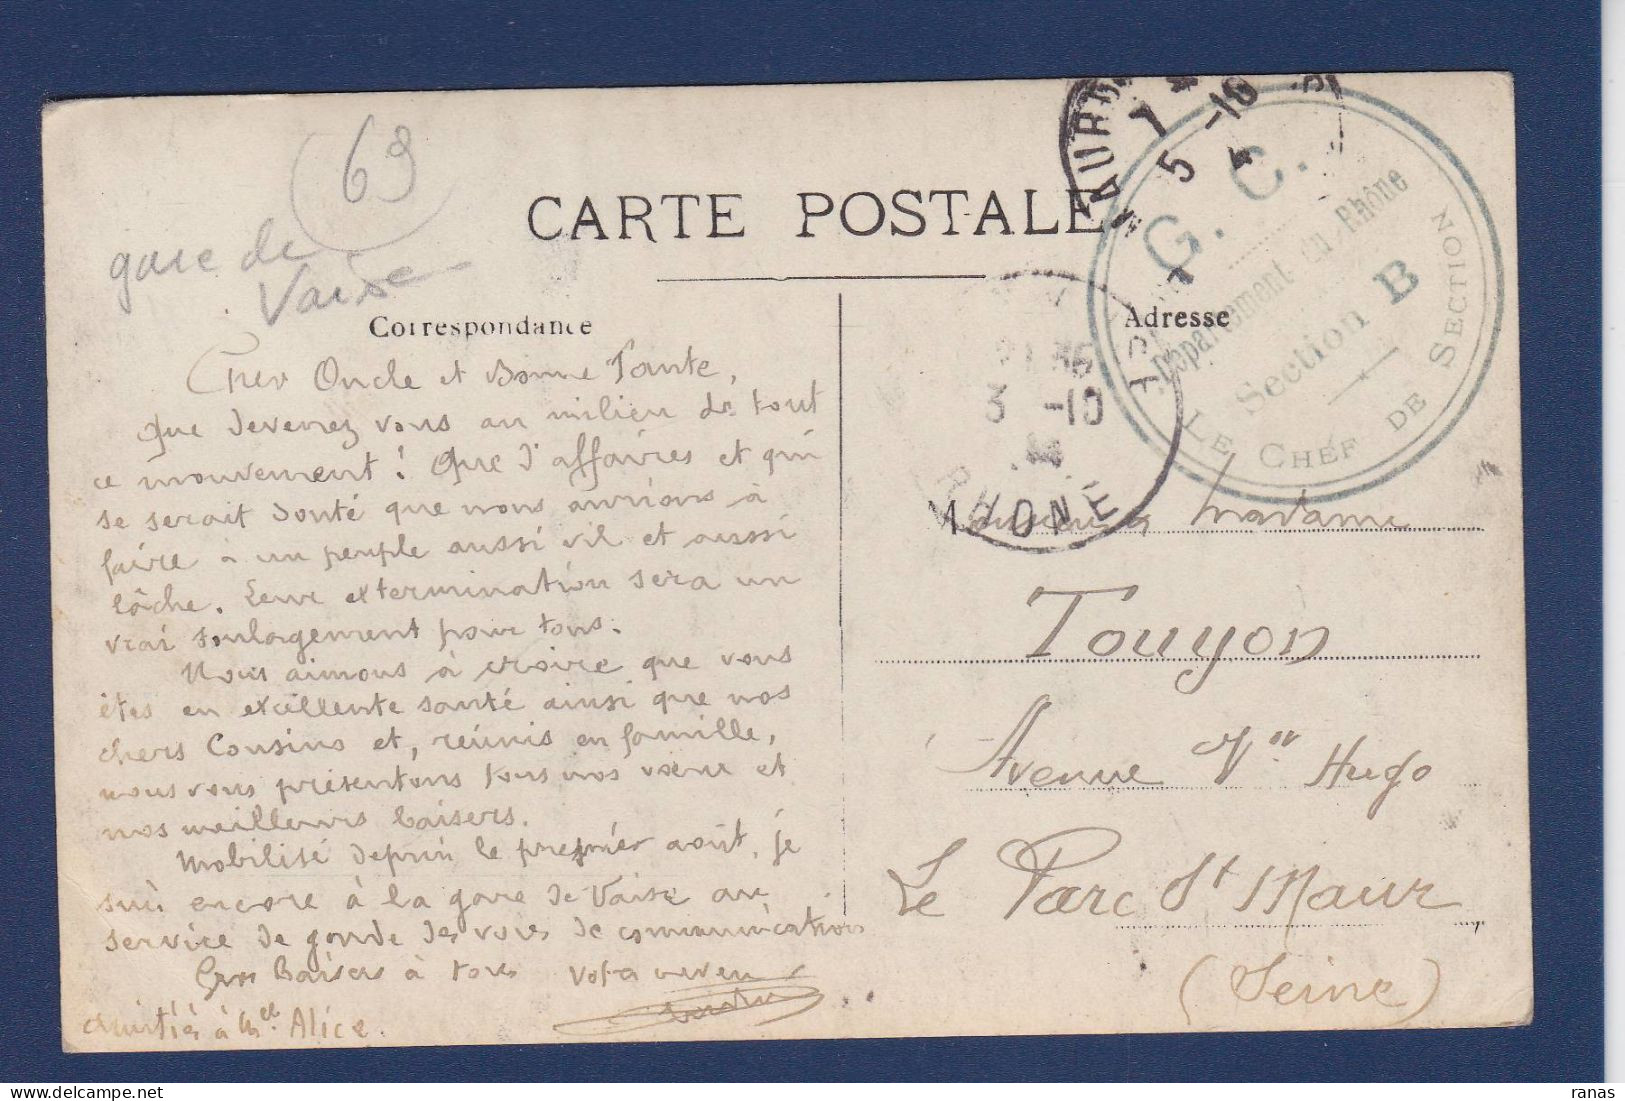 69
gare de
Vaise
CARTE POSTALE
Correspondance
Cher Oncle et Bonne Tante,
Que devenez vous au milieu de tout
ce mouvement! Que d'affaires et qui
se serait douté que nous aurions à
faire à un peuple aussi vil et aussi
lâche. Leur extermination sera un
vrai soulagement pour tous.
Nous aimons à croire que vous
êtes en excellente santé ainsi que nos
chers Cousins et, réunis en famille,
nous vous présentons tous nos vœux et
nos meilleurs baisers.
Mobilisé depuis le premier août, je
suis encore à la gare de Vaise au
service de garde des voies de communications
Gros Baisers à tous votre neveu
amitiés à Melle Alice.
Adresse
G. C.
Département du Rhône
Section B
LE CHEF DE SECTION
5 -10
3 -10
RHONE
Monsieur & Madame
Touyon
Avenue Vor Hugo
Le Parc St Maur
(Seine)
ranas